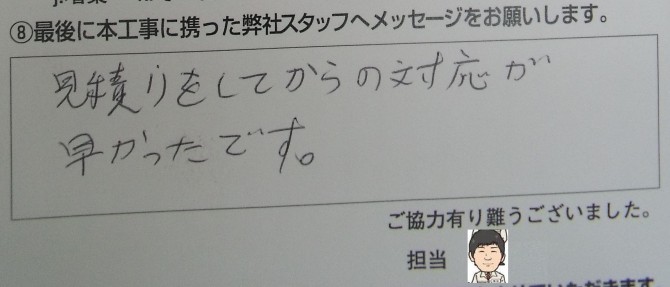 ⑧最後に本工事に携った弊社スタッフへメッセージをお願いします。
見積りをしてからの対応が
早かったです。
ご協力有り難うございました。
担当
せていただきます